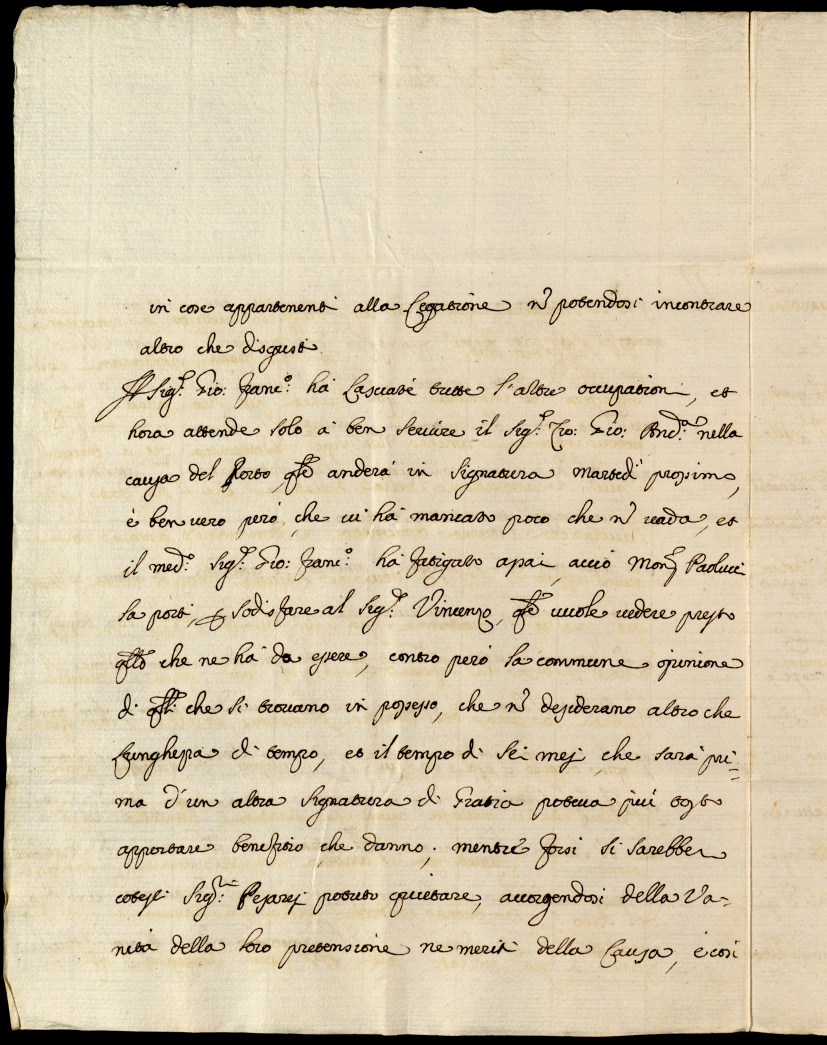 in cose appartenenti alla Legatione nõ potendosi incontrare
altro che disgusti
Il Sig.r Gio: Franc.o ha lasciate tutte l'altre occupationi, et
hora attende solo à ben servire il Sig.r Zio: Gio: And.a nella
causa del Porto, qle anderà in Signatura Martedì prossimo,
è ben vero però, che vi hà mancato poco che nõ vada, et
il med.o Sig.r Gio: Franc.o hà fatigato assai, acciò Mons.r Paolucci
la porti, p sodisfare al Sig.r Vincenzo, qle vuole vedere presto
qllo che ne hà da essere, contro però la commune opinione
di qlli che si trovano in possesso, che nõ desiderano altro che
lunghezza di tempo, et il tempo di sei mesi che sarà pri=
ma d'un altra Signatura di Gratia poteva più tosto
apportare benefitio che danno, mentre forsi si sarebber
cotesti Sig.ri Pesaresi potuto quietare, accorgendosi della Va=
nità della loro pretensione ne meriti della Causa, e così